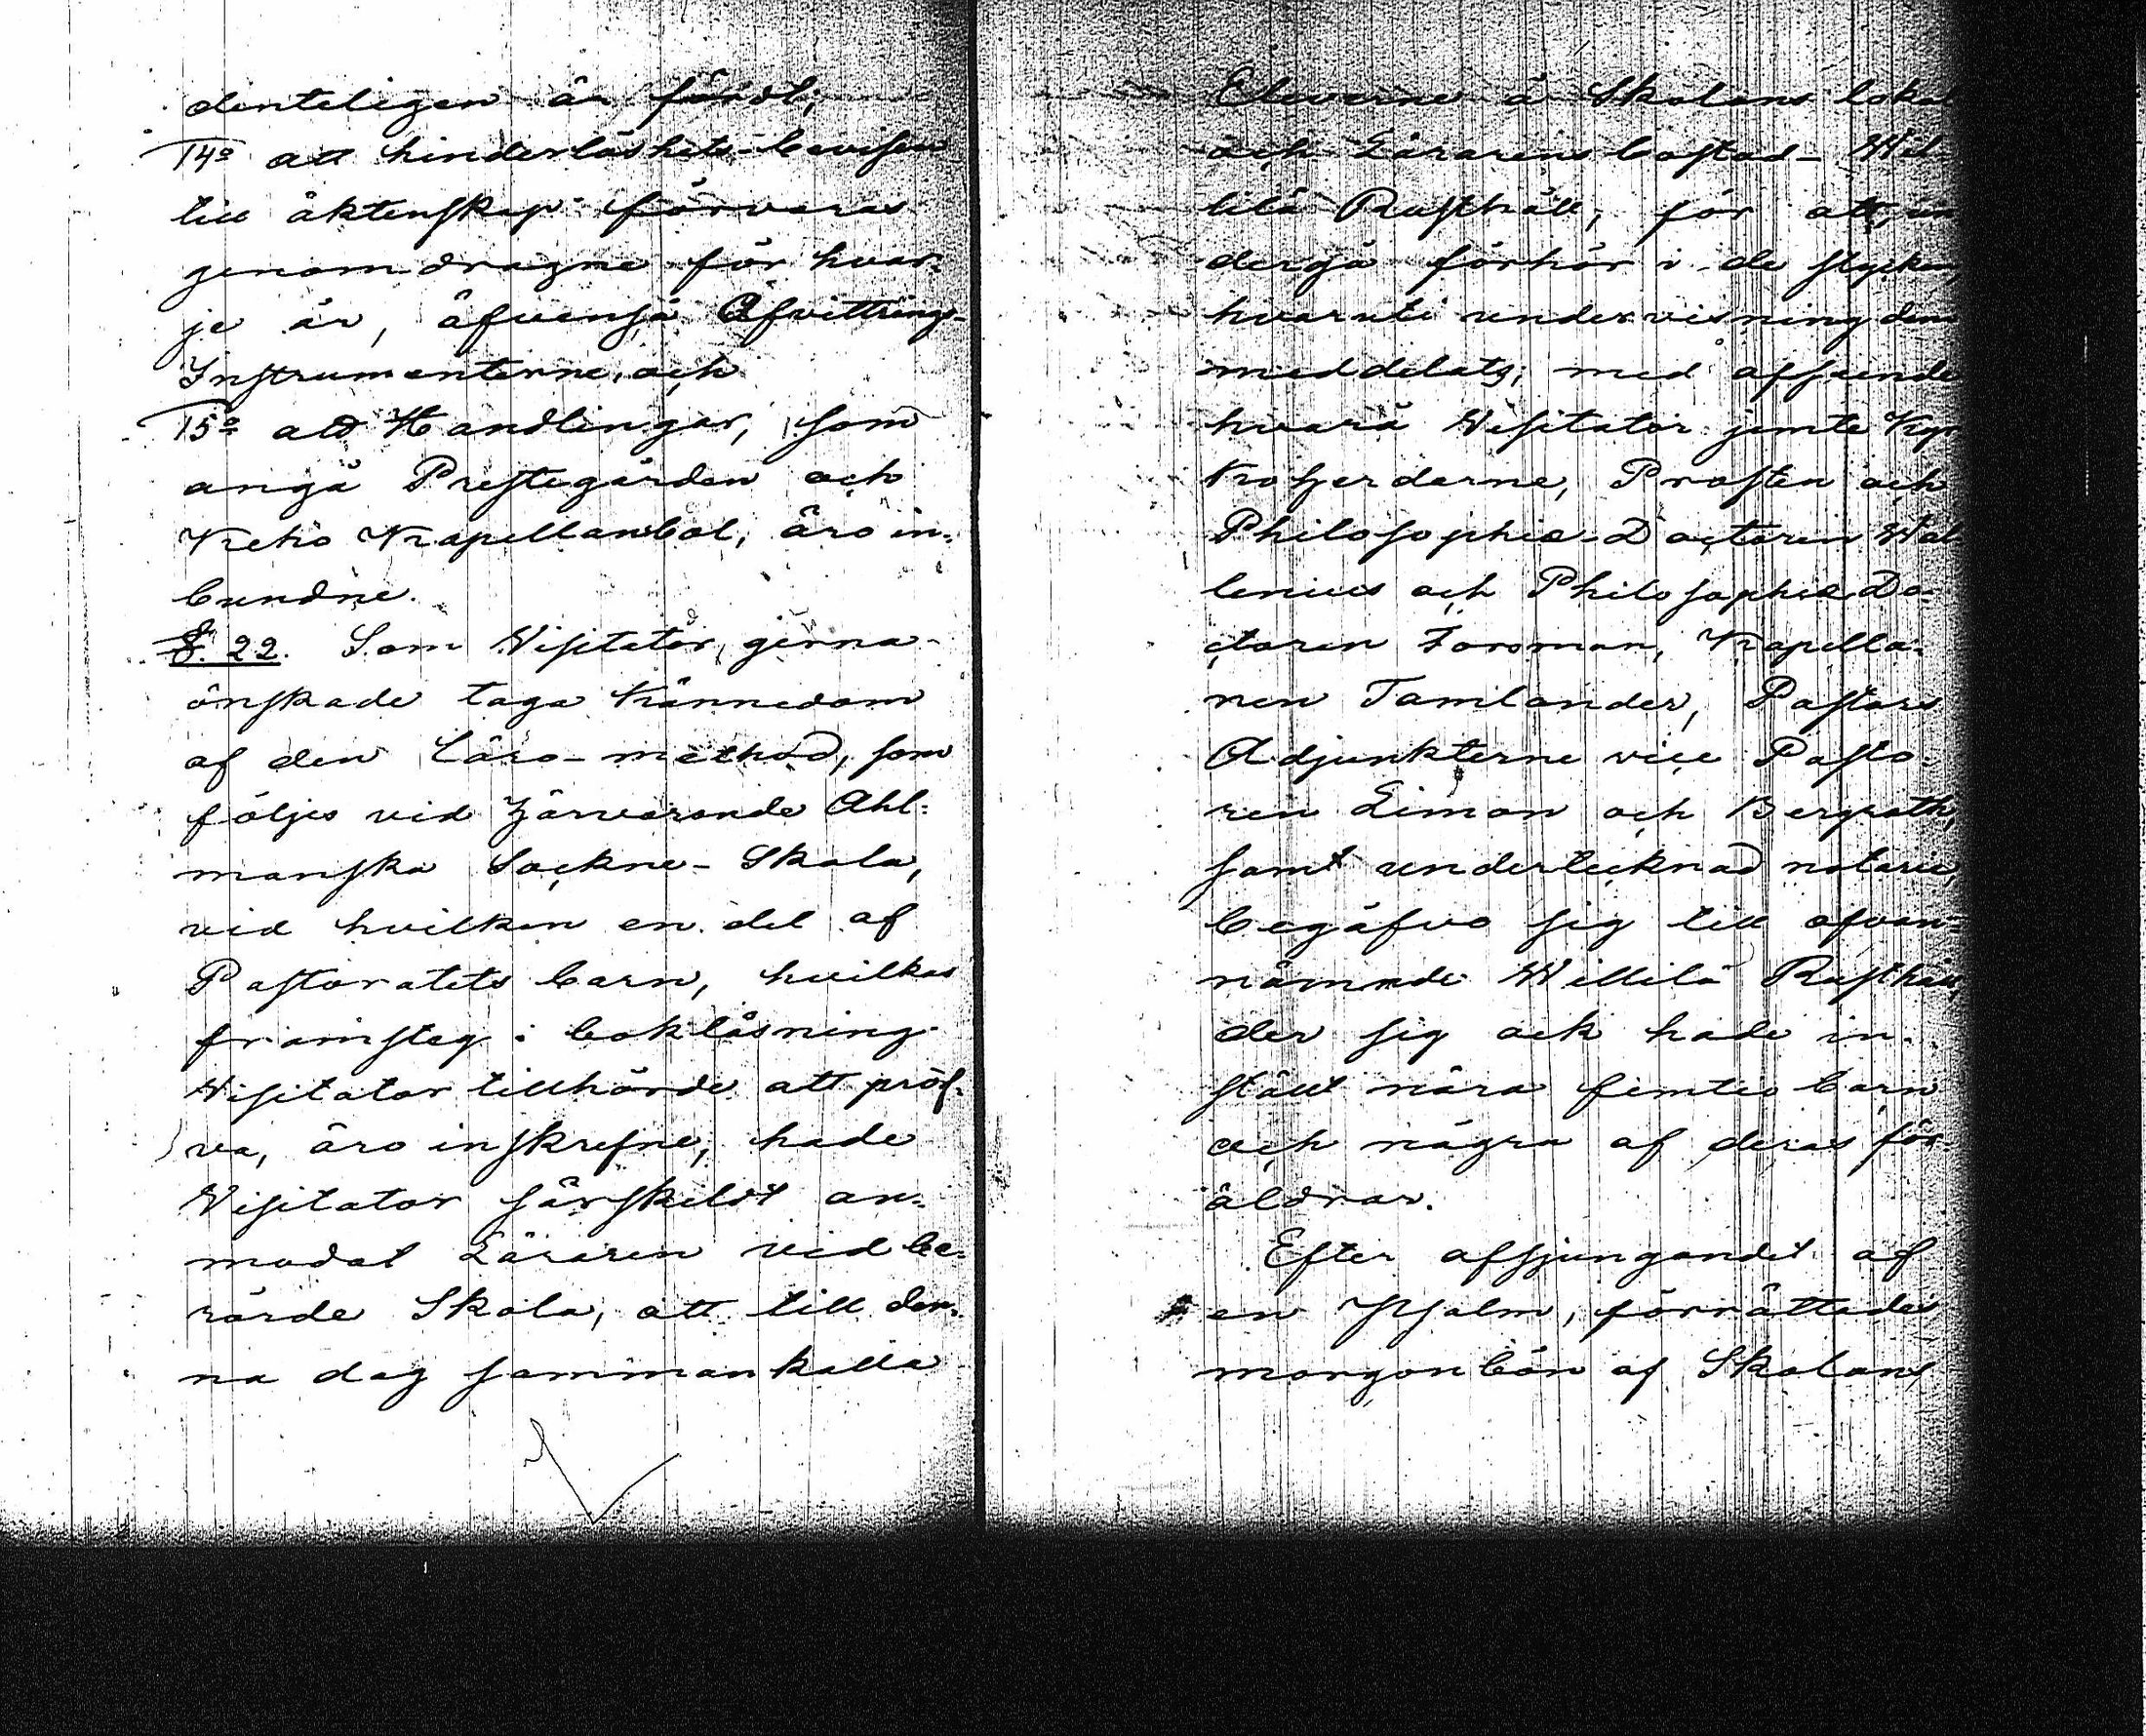 denteligen är fördt;
14º att hinderlöshets-bevisen
till äktenskap förvaras
genomdragne för hvar-
je år, äfvenså Afvittrings-
Instrumenterne, och
15º att Handlingar, som
angå Prestegården och
Kehö Kapellansbol, äro in-
bundne.
§. 22. Som Visitator, gerna
önskade taga kännedom
af den läro-method, som
följes vid härvarande Ahl-
manska Sockne-Skola,
vid hvilken en del af
Pastoratets barn, hvilkas
framsteg i bokläsning
Visitator tillhörde att pröf-
va, äro inskrefne, hade
Visitator särskildt an-
modat Läraren vid be-
rörde Skola, att till den-
na dag sammankalla
Eleverne å Skolans lokal
och Lärarens bostad – Wil-
lilä Rusthåll, för att un
dergå förhör i de stycken,
hvaruti undervisning dem
meddelats, med afseende
hvarå Visitator jemte Kyr
koherderne, Prosten och
Philosophiæ-Doctoren Wal
lenius och Philosophiæ Do-
ctoren Forsman, Kapella-
nen Tamlander, Pastors
Adjunkterne vice Pasto-
ren Limon och Bergroth,
samt undertecknad notarie,
begåfvo sig till ofvan-
nämnde Willilä Rusthåll,
der sig ock hade in-
ställt nära femtio barn
och några af deras för-
äldrar.
Efter afsjungandet af
en psalm, förrättades
morgonbön af Skolans